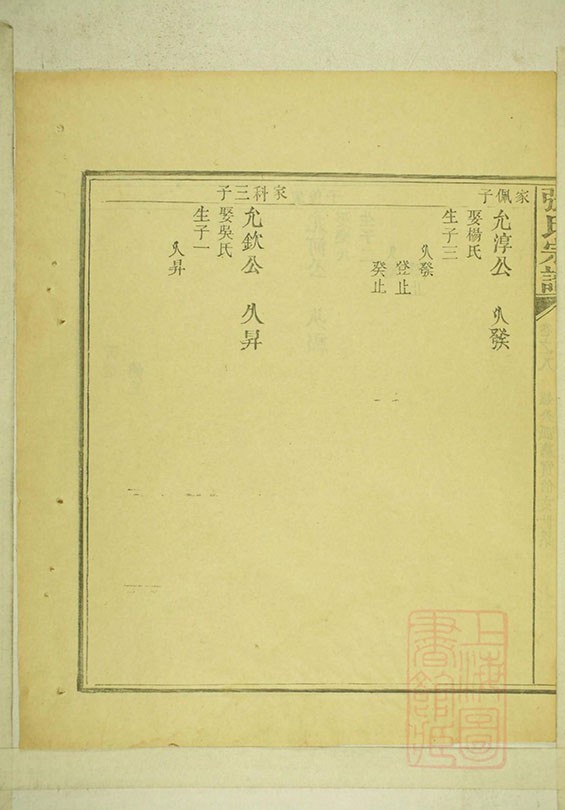 張氏宗譜
家佩子
允淳公 久發
娶楊氏
生子三
久發
登止
癸止
家科三子
允欽公 久昇
娶吳氏
生子一
久昇
上海圖書館藏